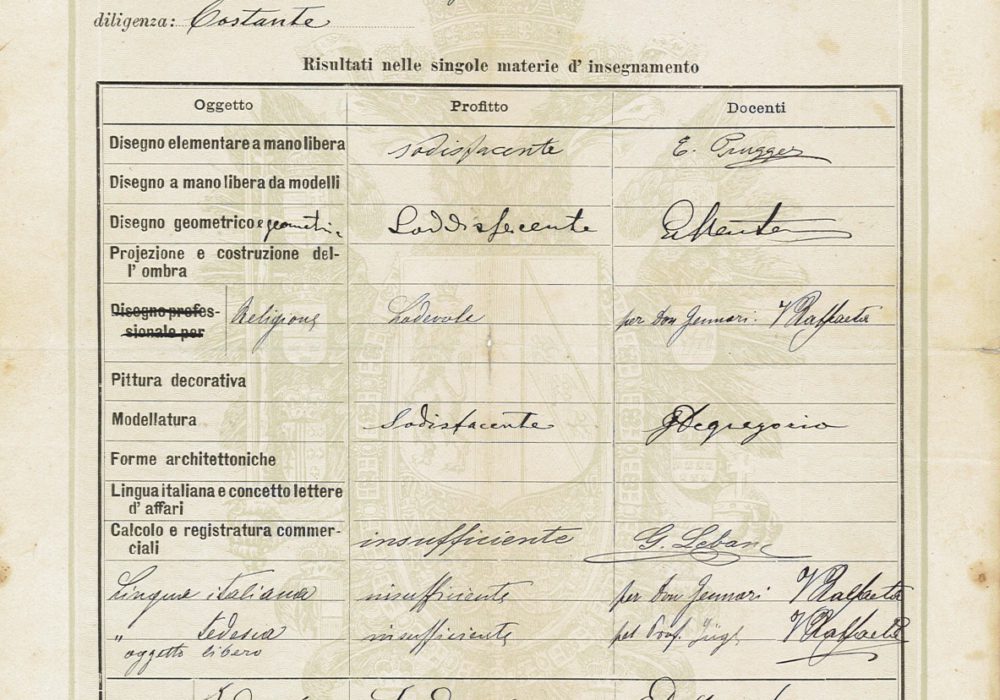 diligenza: Costante
Risultati nelle singole materie d' insegnamento
Oggetto Profitto Docenti
Disegno elementare a mano libera sodisfacente E. Prugger
Disegno a mano libera da modelli
Disegno geometrico e geometri. Soddisfacente
Projezione e costruzione del-
l' ombra
Disegno profes- Religione Lodevole per Don Gennari. V Raffaeta
sionale per
Pittura decorativa
Modellatura Sodisfacente Degregorio
Forme architettoniche
Lingua italiana e concetto lettere
d' affari
Calcolo e registratura commer- insufficiente G. Leban
ciali
Lingua italiana insufficiente per Don Gennari V Raffaeta
„ tedesca insufficiente pel Prof. V Raffaeta
oggetto libero